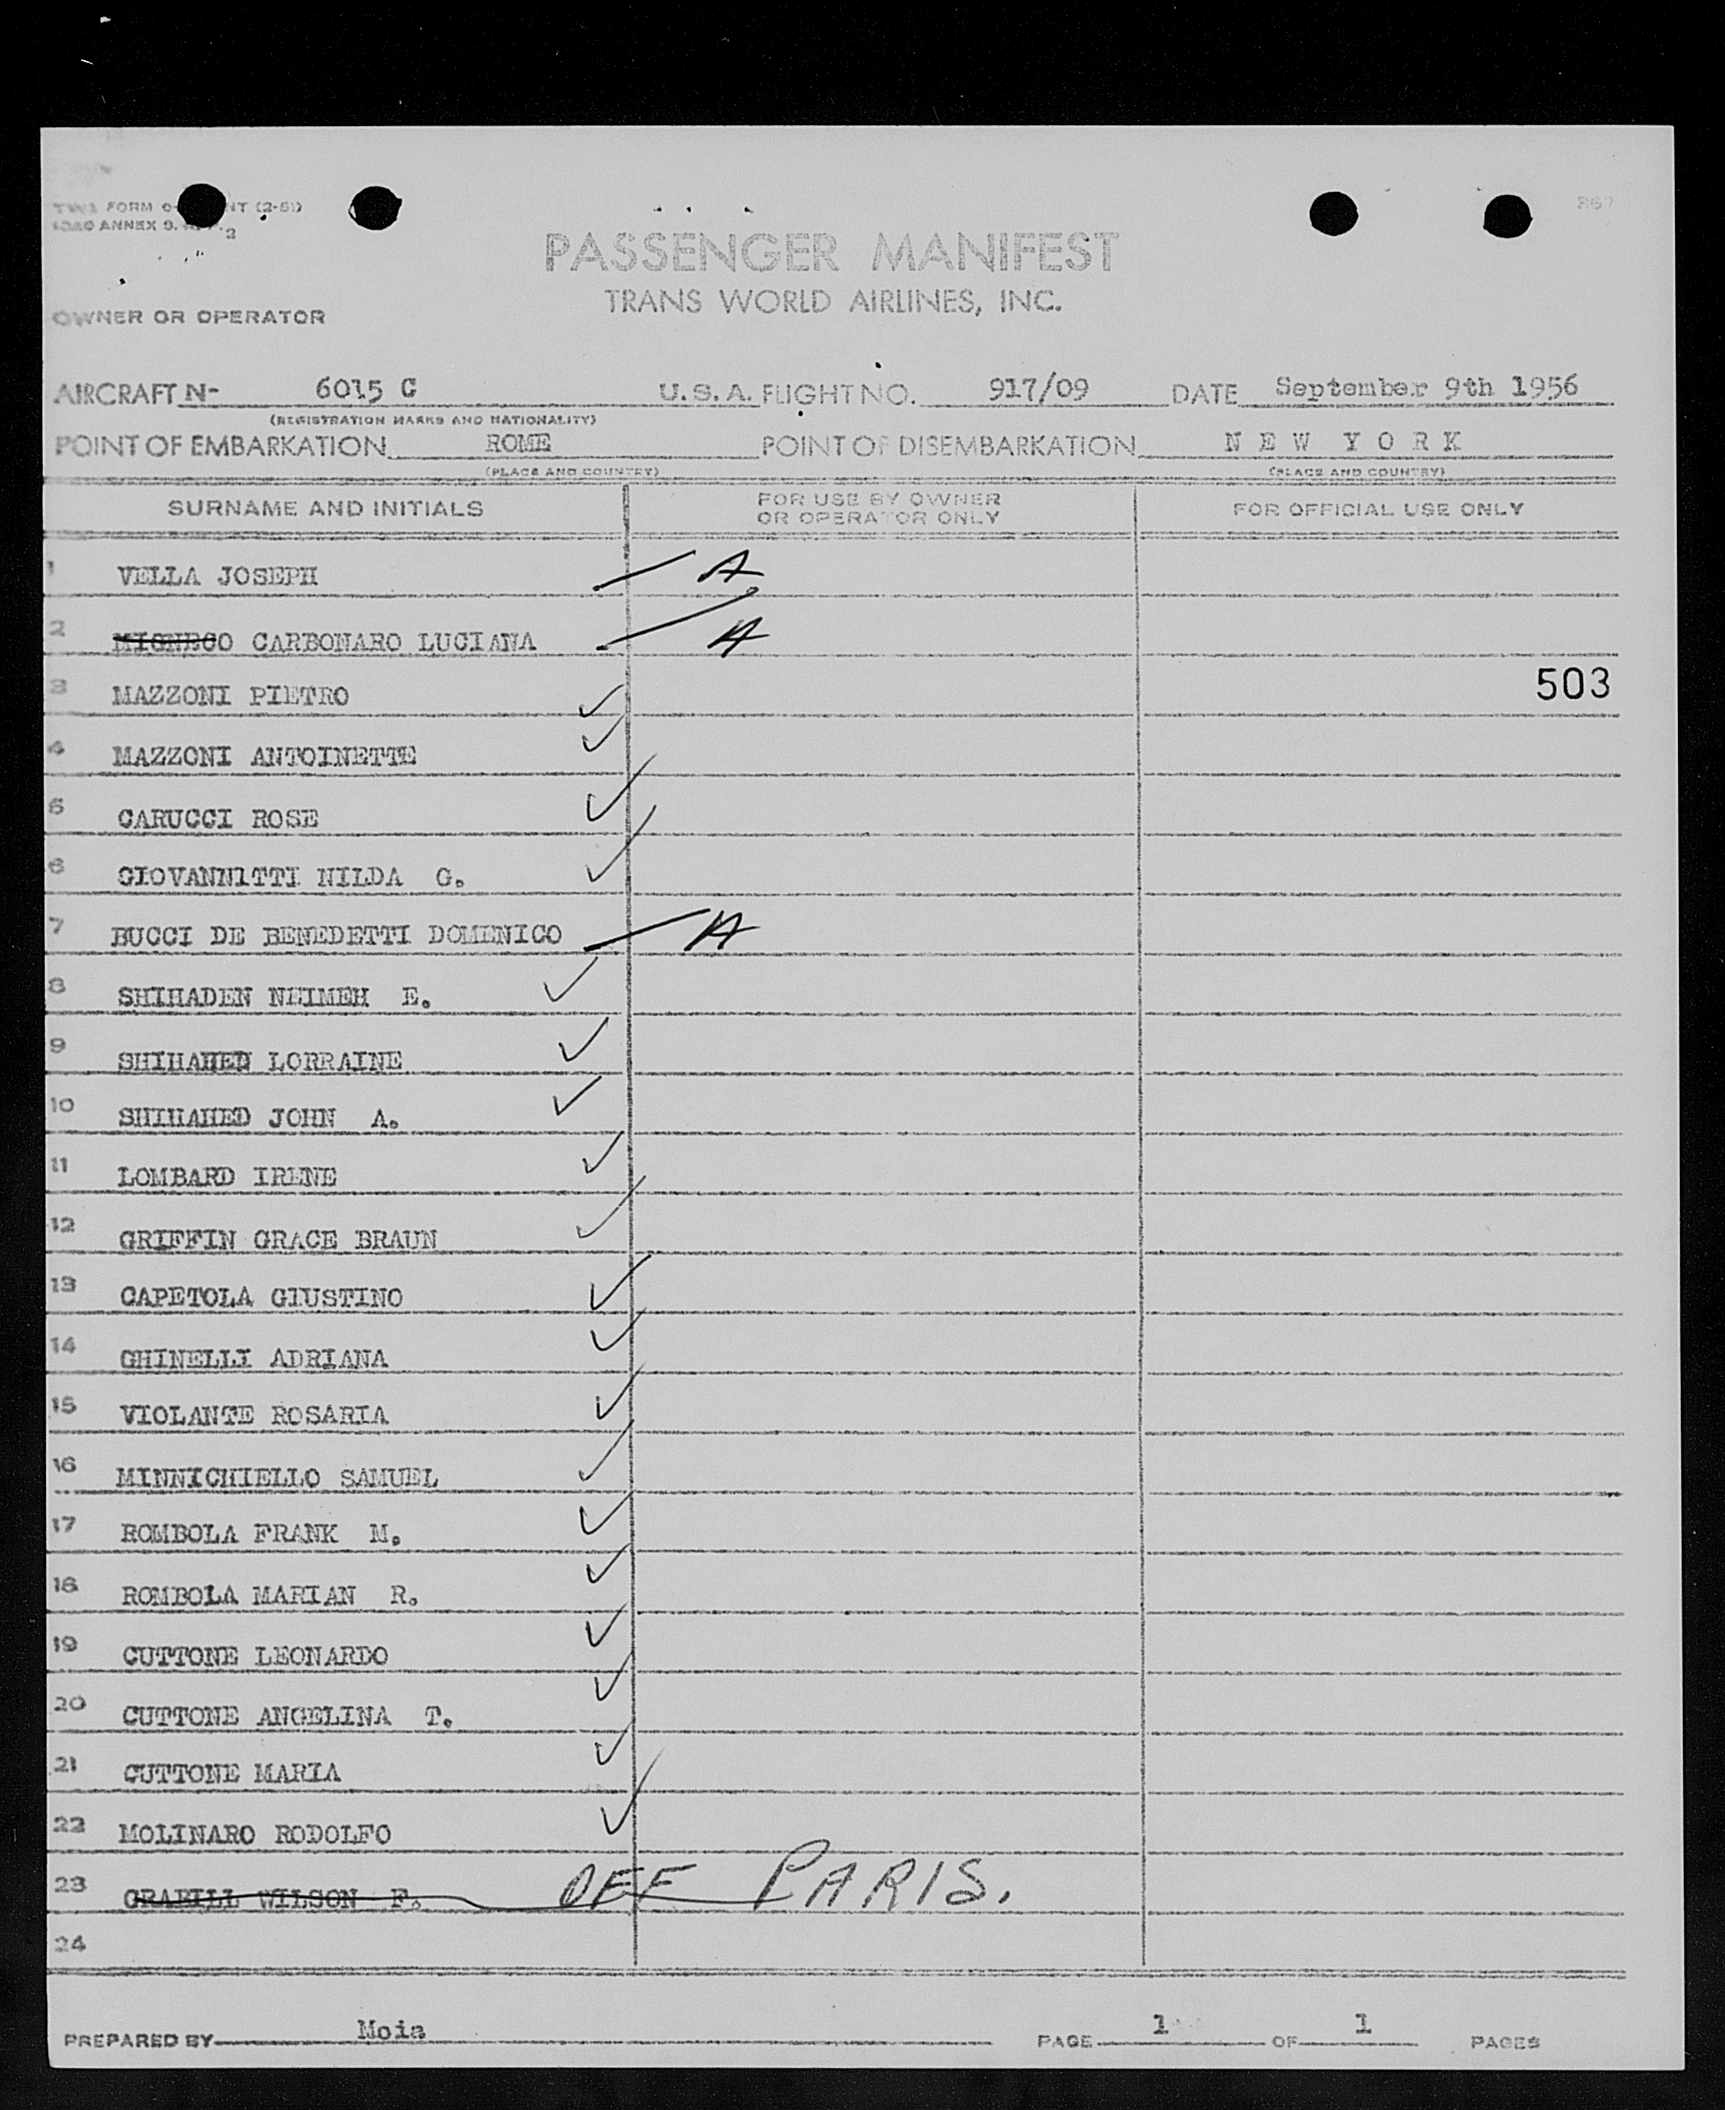 TWA FORM
ICAO ANNEX 9.
867
PASSENGER MANIFEST
TRANS WORLD AIRLINES, INC.
OWNER OR OPERATOR
AIRCRAFT N- 6015 C U.S.A. FLIGHT NO. 917/09 DATE September 9th 1956
(REGISTRATION MARKS AND NATIONALITY)
POINT OF EMBARKATION ROME POINT OF DISEMBARKATION N E W Y O R K
(PLACE AND COUNTRY) (PLACE AND COUNTRY)
SURNAME AND INITIALS FOR USE BY OWNER OR OPERATOR ONLY FOR OFFICIAL USE ONLY
1 VELLA JOSEPH A
2 MIGNECO CARBONARO LUCIANA A
3 MAZZONI PIETRO 503
4 MAZZONI ANTOINETTE
5 CARUCCI ROSE
6 GIOVANNITTI NILDA G.
7 BUCCI DE BENEDETTI DOMENICO A
8 SHIHADEN NEIMEH E.
9 SHIHAHED LORRAINE
10 SHIHAHED JOHN A.
11 LOMBARD IRENE
12 GRIFFIN GRACE BRAUN
13 CAPETOLA GIUSTINO
14 GHINELLI ADRIANA
15 VIOLANTE ROSARIA
16 MINNICHIELLO SAMUEL
17 ROMBOLA FRANK M.
18 ROMBOLA MARIAN R.
19 CUTTONE LEONARDO
20 CUTTONE ANGELINA T.
21 CUTTONE MARIA
22 MOLINARO RODOLFO
23 GRABILL WILSON F. OFF PARIS.
24
PREPARED BY Moia PAGE 1 OF 1 PAGES